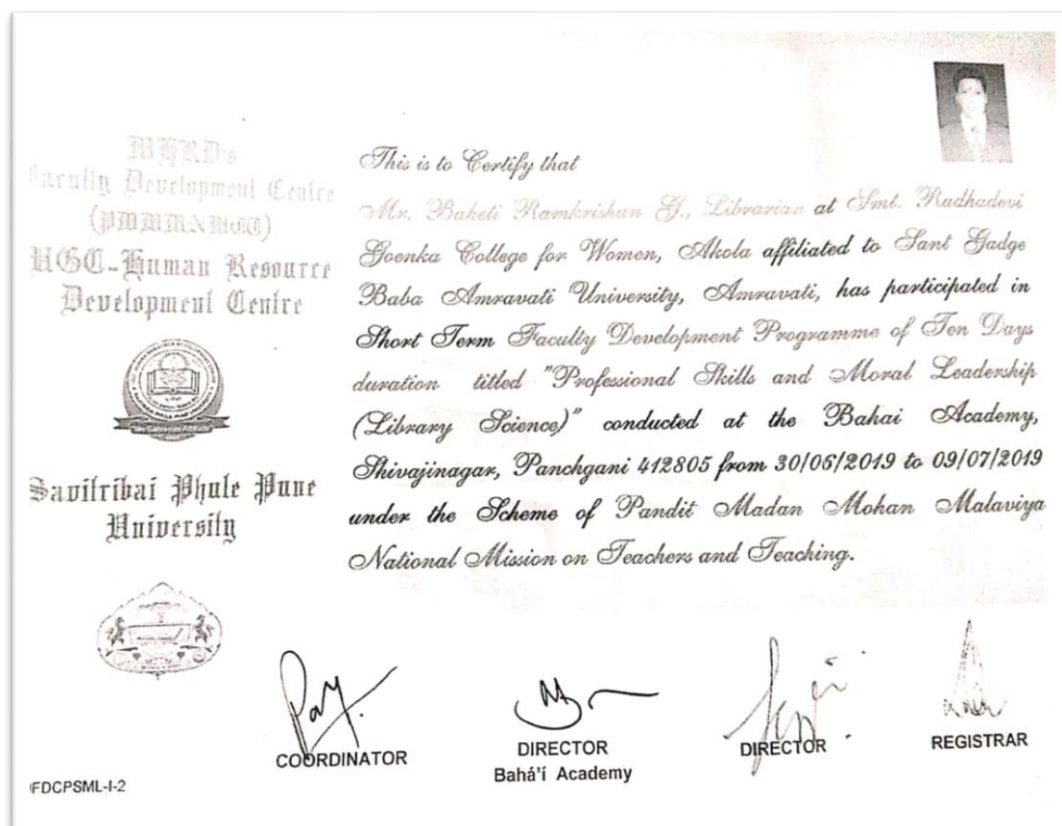 MHRD's
Faculty Development Centre
(PMMMNMTT)
UGC-Human Resource
Development Centre
Savitribai Phule Pune
University
This is to Certify that
Mr. Baheti Ramkrishan G., Librarian at Smt. Radhadevi
Goenka College for Women, Akola affiliated to Sant Gadge
Baba Amravati University, Amravati, has participated in
Short Term Faculty Development Programme of Ten Days
duration titled "Professional Skills and Moral Leadership
(Library Science)" conducted at the Bahai Academy,
Shivajinagar, Panchgani 412805 from 30/06/2019 to 09/07/2019
under the Scheme of Pandit Madan Mohan Malaviya
National Mission on Teachers and Teaching.
COORDINATOR
DIRECTOR
Bahá'í Academy
DIRECTOR
REGISTRAR
FDCPSML-I-2